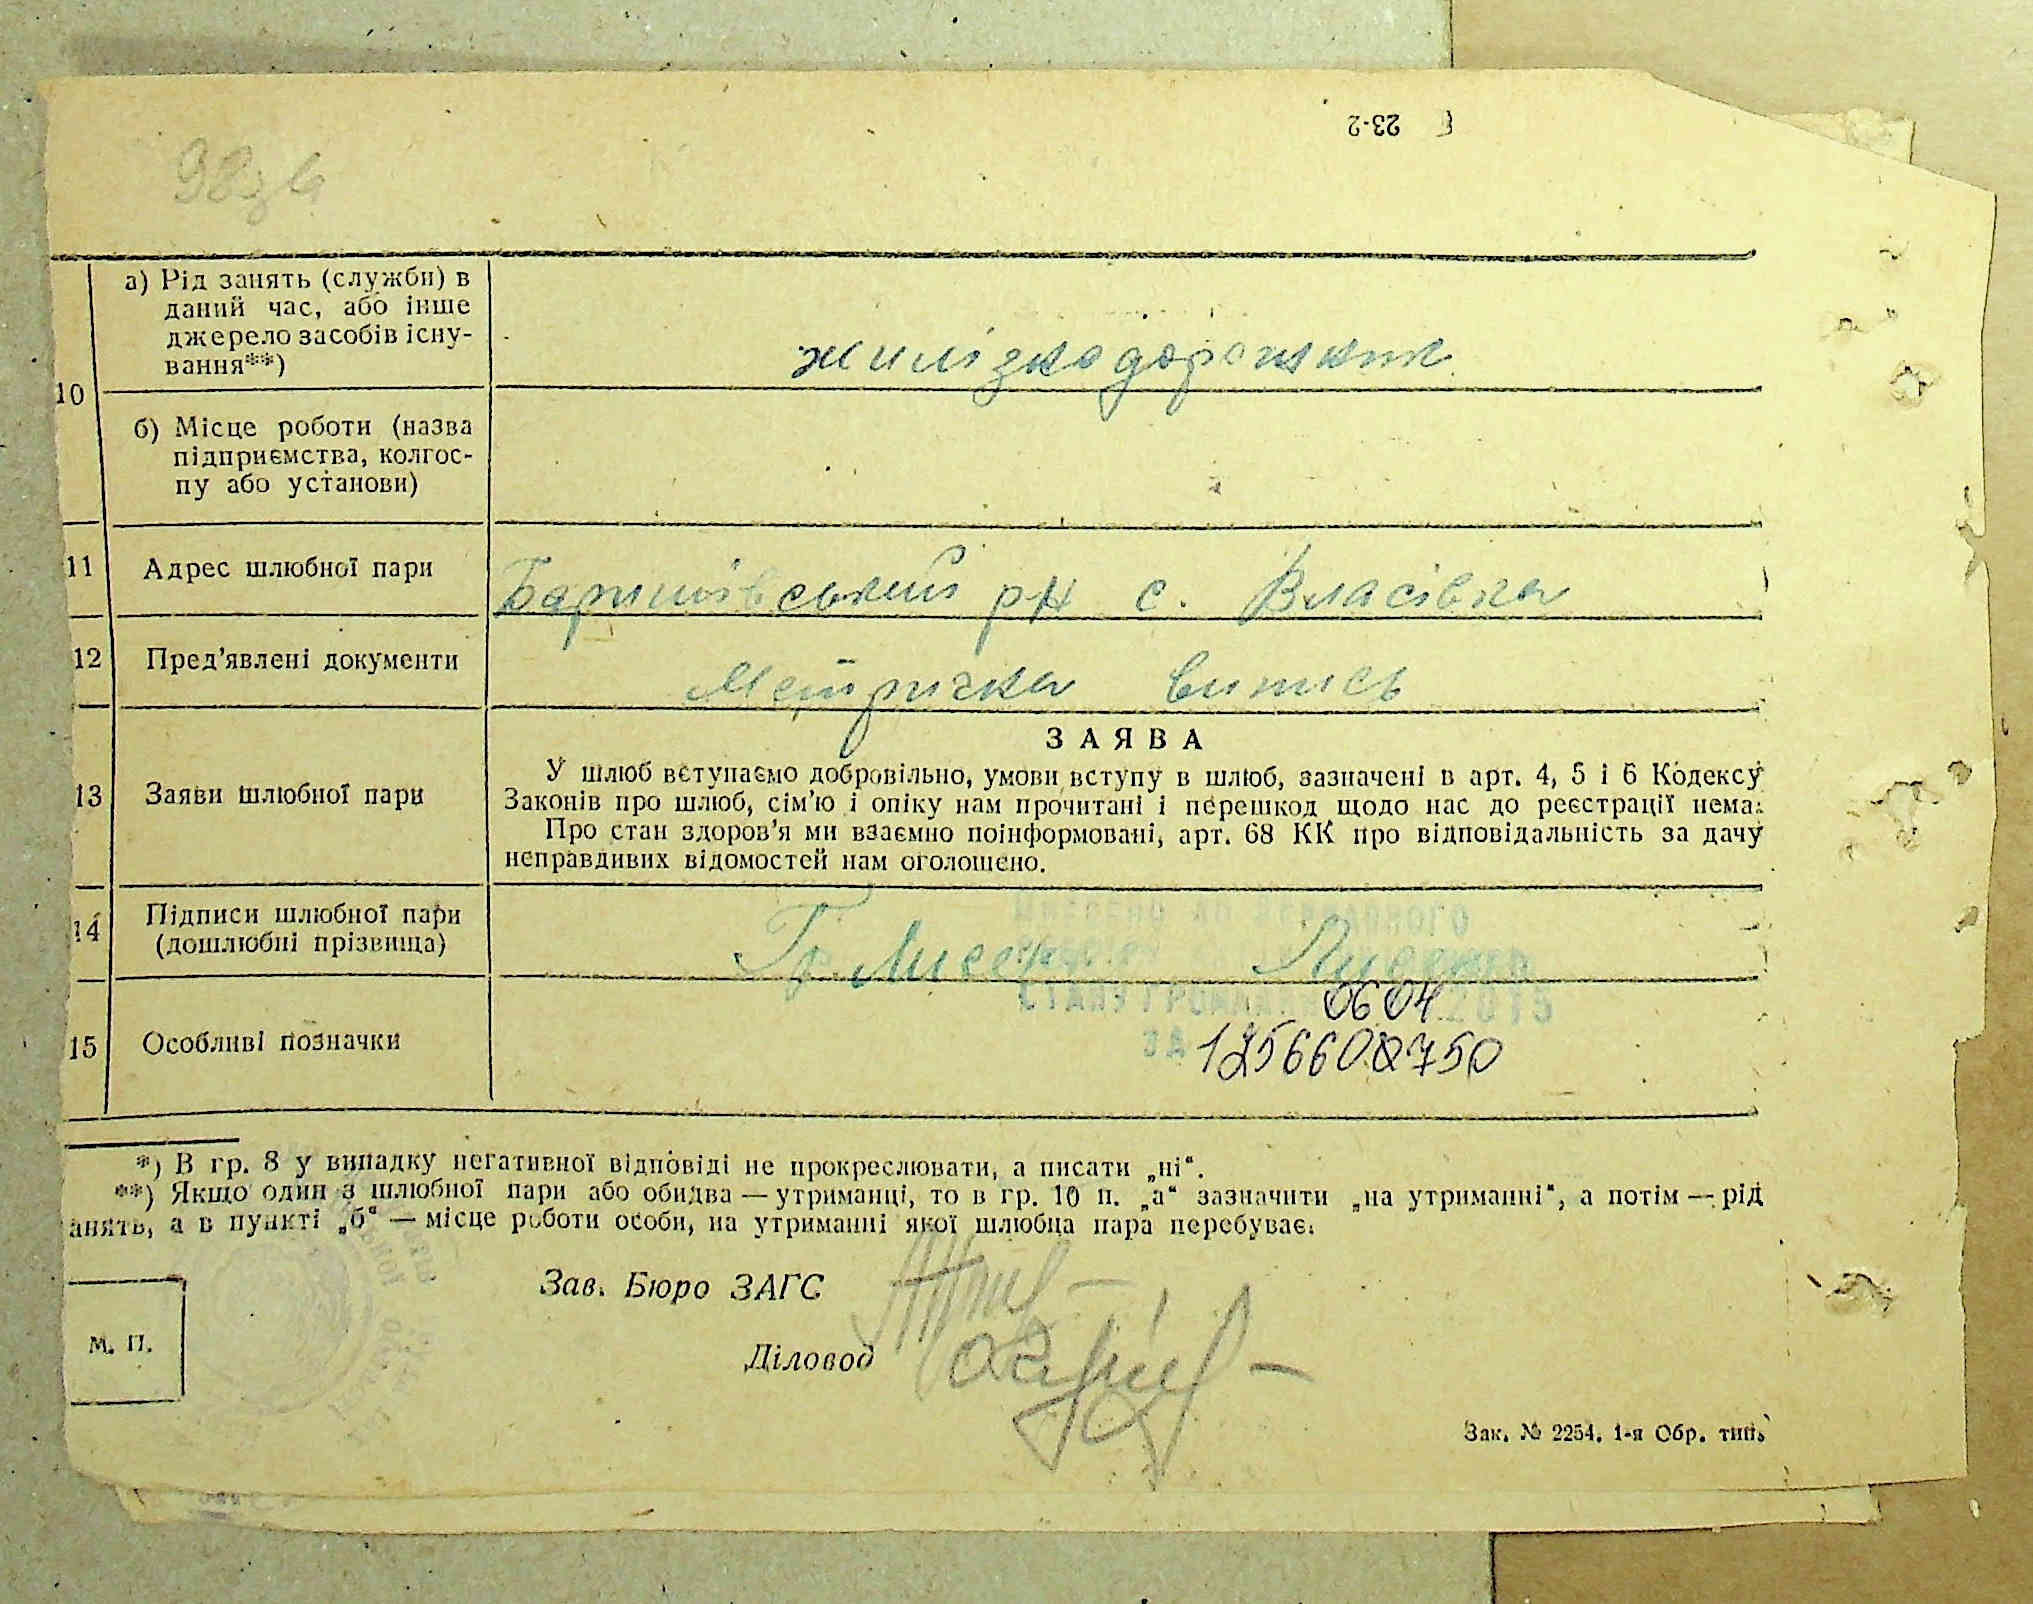 98зв
23-2
10
а) Рід занять (служби) в
даний час, або інше
джерело засобів існу-
вання**)
жилізнодорожник
б) Місце роботи (назва
підприємства, колгос-
пу або установи)
11
Адрес шлюбної пари
Баришівський р-н с. Власівка
12
Пред’явлені документи
Метричка випись
13
Заяви шлюбної пари
ЗАЯВА
У шлюб вступаємо добровільно, умови вступу в шлюб, зазначені в арт. 4, 5 і 6 Кодексу
Законів про шлюб, сім’ю і опіку нам прочитані і перешкод щодо нас до реєстрації нема.
Про стан здоров’я ми взаємно поінформовані, арт. 68 КК про відповідальність за дачу
неправдивих відомостей нам оголошено.
14
Підписи шлюбної пари
(дошлюбні прізвища)
ВНЕСЕНО ДО ДЕРЖАВНОГО
СТАНУ ГРОМАДЯН 0604 2015
15
Особливі позначки
ЗА 1256602750
*) В гр. 8 у випадку негативної відповіді не прокреслювати, а писати „ні“.
**) Якщо один з шлюбної пари або обидва — утриманці, то в гр. 10 п. „а“ зазначити „на утриманні“, а потім — рід
анять, а в пункті „б“ — місце роботи особи, на утриманні якої шлюбна пара перебуває.
Зав. Бюро ЗАГС
М. П.
Діловод
Зак. № 2254. 1-я Обр. тип.